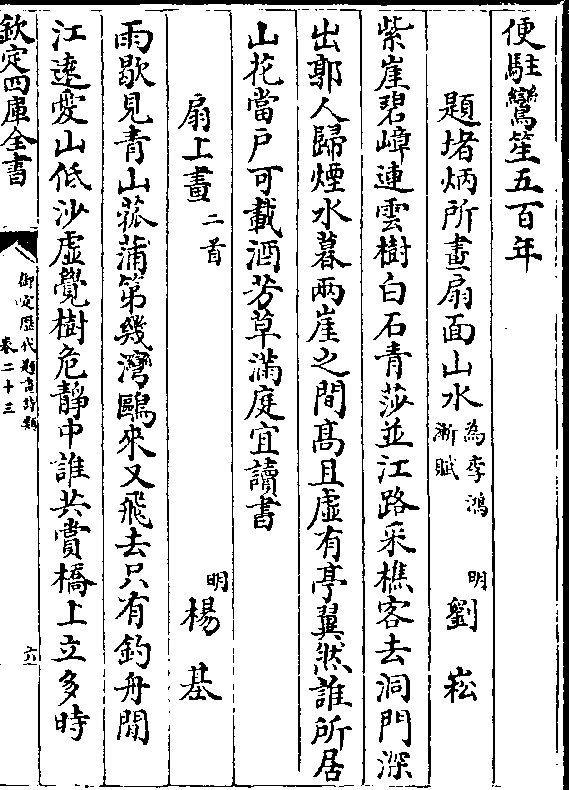 便駐鸞笙五百年
題堵炳所畫扇面山水 為李鴻漸賦 明 劉崧
紫崖碧嶂連雲樹白石青莎並江路采樵客去洞門深
出郭人歸煙水暮兩崖之間髙且虛有亭翼然誰所居
山花當户可載酒芳草滿庭宜讀書
扇上畫 二首 明 楊基
雨歇見青山菰蒲第幾灣鷗來又飛去只有釣舟閒
江逺愛山低沙虛覺樹危靜中誰共賞橋上立多時
欽定四庫全書
御定歴代題畫詩類
卷二十三
六